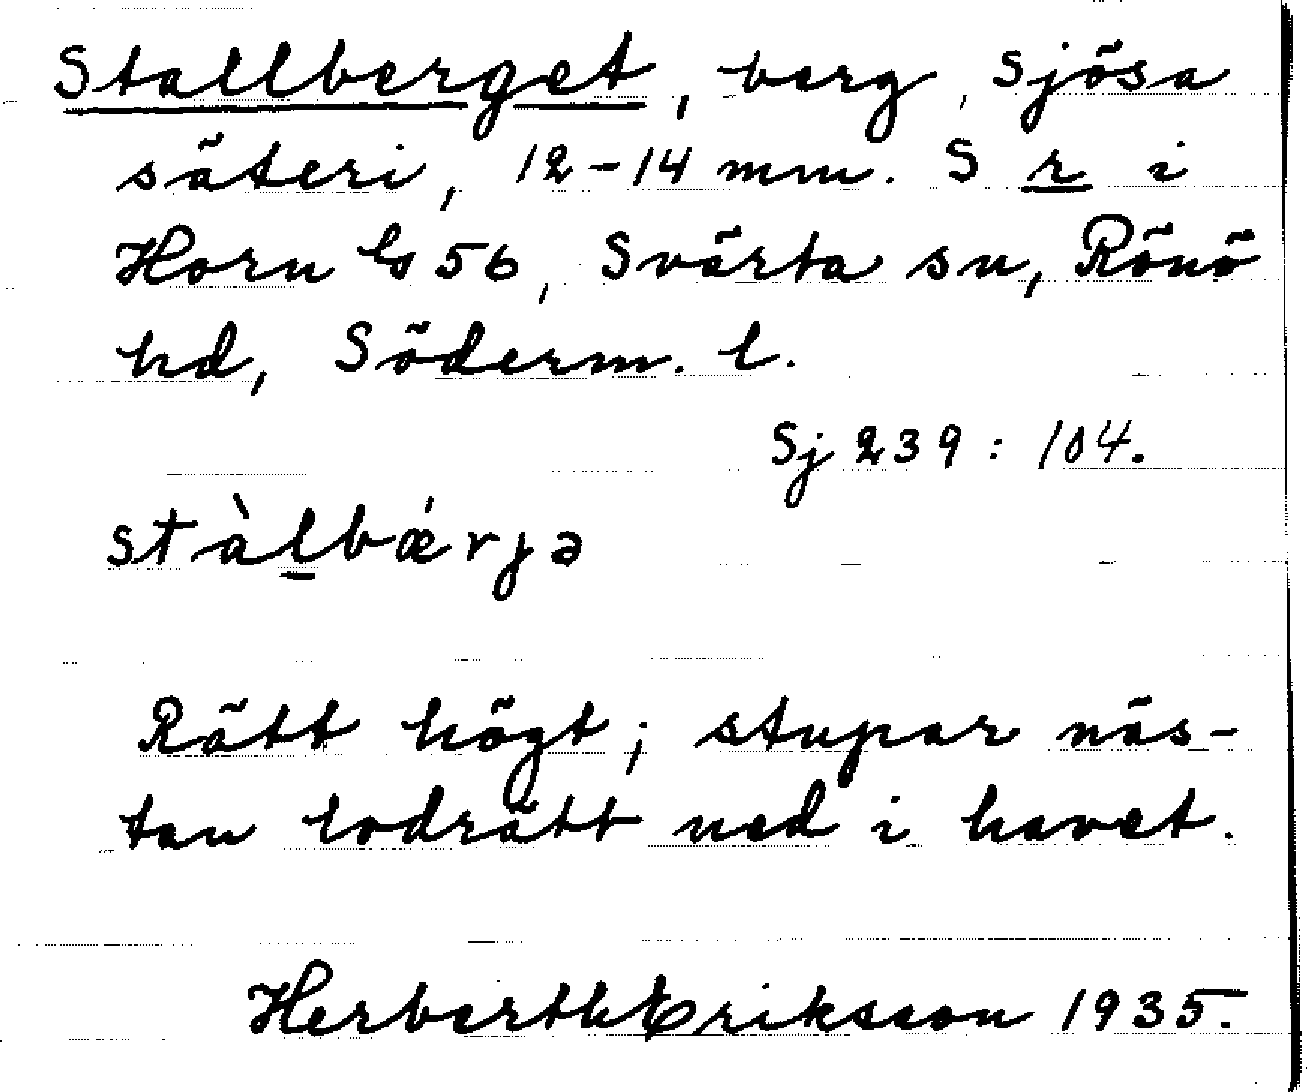 Stallberget, berg, Sjösa
säteri, 12-14 mm. S r i
Horn G 56, Svärta sn, Rönö
hd, Söderm. l.
Sj 239: 104.
stàlbǽrjə
Rätt högt; stupar näs-
tan lodrätt ned i havet.
Herberth Eriksson 1935.